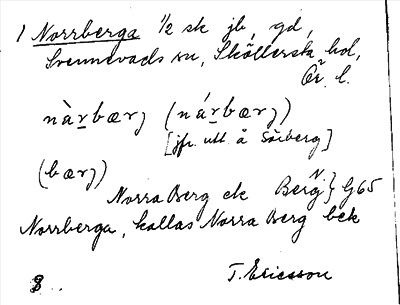 1 Norrberga 1/2 sk jb, gd,
Svennevads sn, Sköllersta hd,
Ör. l.
nàrbærj (nárbærj)
[jfr. utt. å Sörberg]
(bærj)
Norra Berg ek Berg N } G65
Norrberga, kallas Norra Berg bek
T. Ericsson